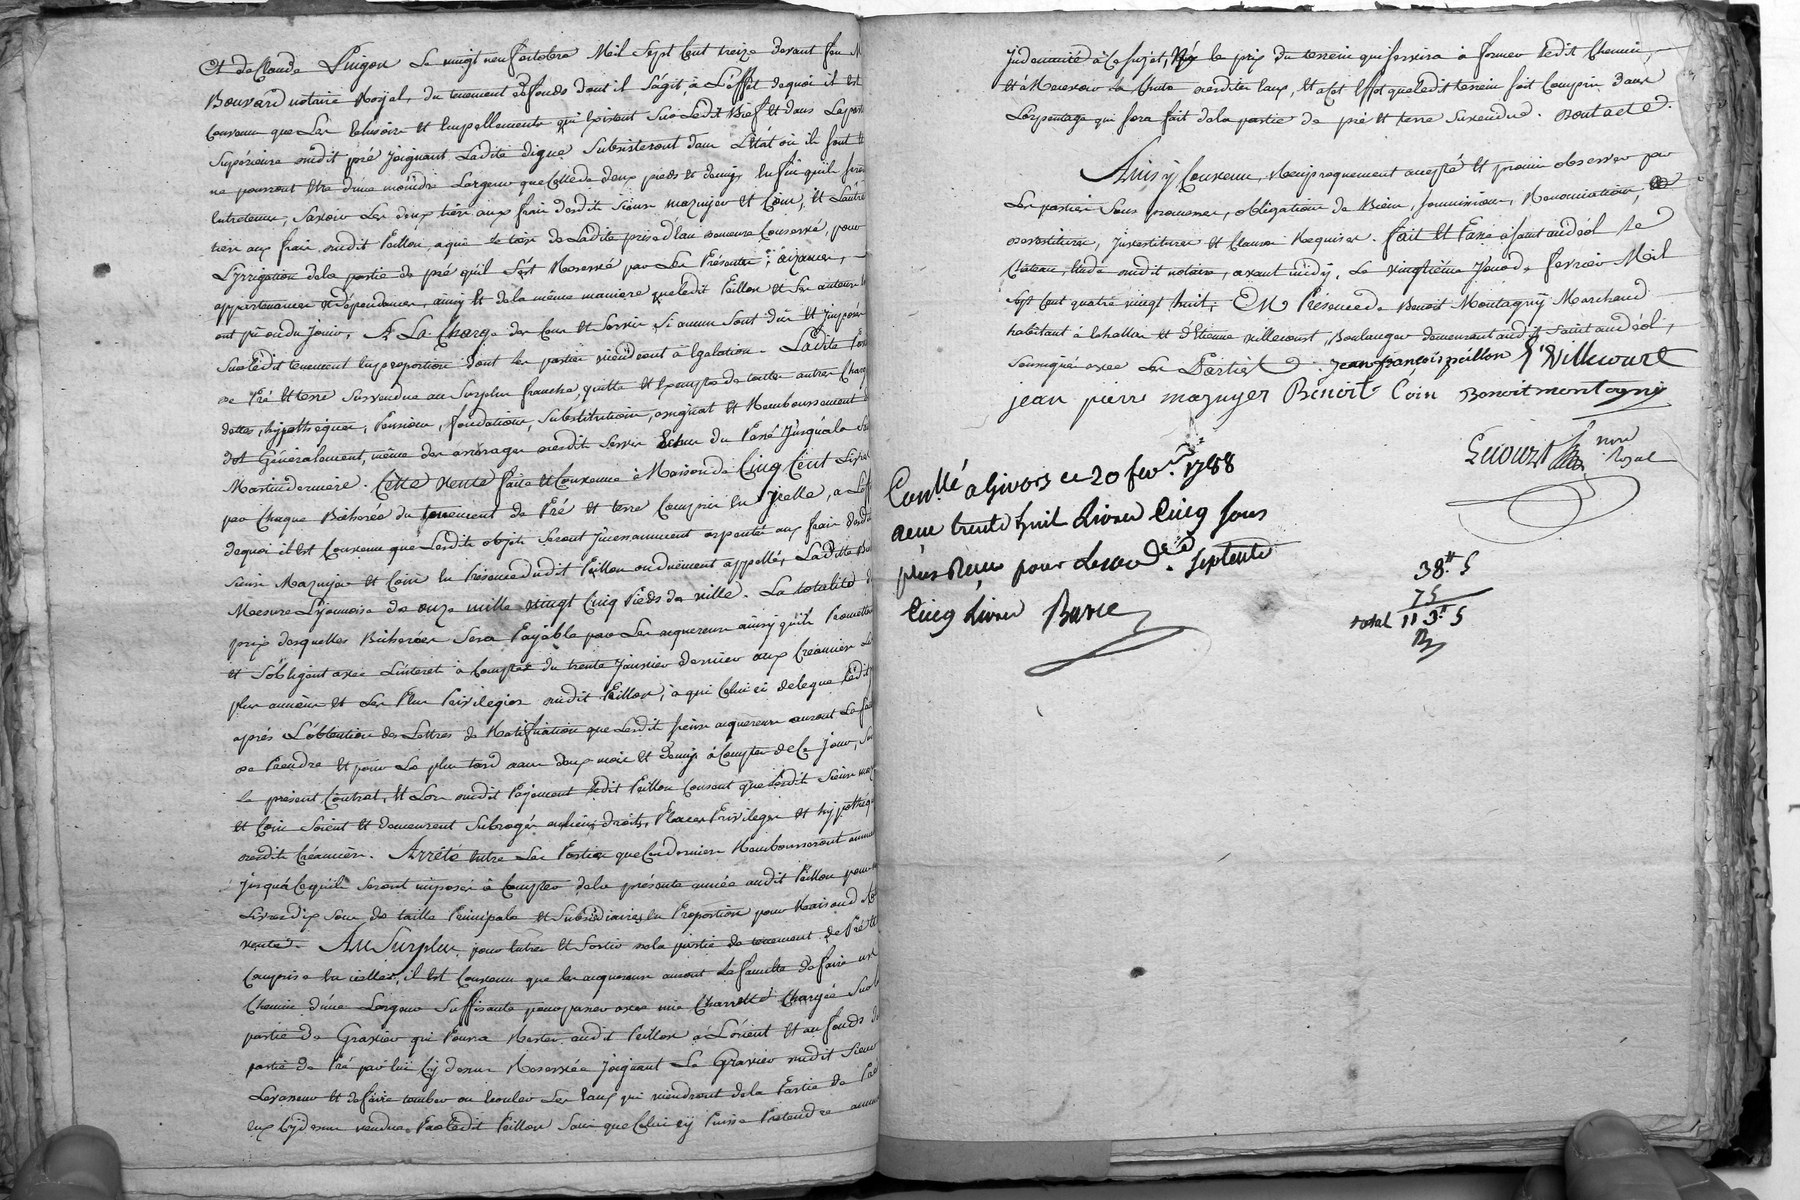 Et de Claude Pingon le vingt neuf octobre Mil Sept Cent treize devant feu M
Bouvard notaire Royal, du tenement et fonds dont il S'agit à L'effet de quoi il est
Convenu que Les Ecluisoir et Empellements qui Existent Sur Ledit Bief et dans La partie
Supérieure dudit pré Joignant Ladite digue Subsisteront dans L'état où ils sont et
ne pourront Etre d'une moindre Largeur que Celle de deux pieds et demy, Enfin qu'ils seront
Entretenus, Savoir Les deux tiers aux frais desdits Sieurs maznyer et Coin, et L'autre
tiers aux frais dudit Peillon, à qui Le tiers de Ladite prise d'Eau demeure Conservé, pour
L'Irrigation de la partie de pré qu'il S'est Reservé par Les Présentes; aizances,
appartenances et dépendances, ainsy et de la même maniere que ledit Peillon et Ses auteurs
ont pû ou du Jouir, A La Charge des Cens et Servis Si aucuns Sont dûs et Imposés
Sur ledit tenement En proportion dont les parties viendront à Egalation. Ladite
de Pré et terre Survendue au Surplus franche, quitte et Exempte de toutes autres Charges
dettes, hypothèques, Pensions, fondations, Substitutions, douaires et Remboursement
dot Généralement, même des arrérages desdits Servis Echus du Passé Jusqu'à la St
Martin derniere. Cette vente faite et Convenue à Raison de Cinq Cent Livres
par Chaque Bicherée du tenement de Pré et terre Compris En Icelle, à L'effet
de quoi il Est Convenu que Lesdits objets Seront Incessamment arpentés aux frais desdits
Sieurs Maznyer et Coin En Présence dudit Peillon ou duëment appellé, Ladite Bicherée
Mesure Lyonnoise de onze mille vingt Cinq Pieds de ville. La totalité du
prix desquelles Bicherées Sera Payable par Les acquereurs ainsy qu'ils Promettent
et S'obligent avec L'interet à Compter du trente Janvier dernier aux Creanciers Les
plus anciens et Les Plus Privilegiés dudit Peillon, à qui Celui ci delegue ledit prix
aprés L'obtention des Lettres de Ratification que Lesdits sieurs acquereurs auront La faculté
de Prendre et pour Le plus tard dans deux mois et demy à Compter de Ce Jour, Sur
le présent Contrat, et Lors dudit Payement Ledit Peillon Consent que Lesdits Sieurs maznyer
et Coin Soient et demeurent Subrogés aux droits, Places Privileges et hypothèques
desdits Créanciers. Arrêté Entre Les Parties que Ces derniers Rembourseront
Jusqu'à Ce qu'ils Seront imposés à Compter de la présente année audit Peillon
Livres dix Sous de taille Principale et Subsidiaires En Proportion pour Raison de
vente. Au Surplus, pour Entrer et Sortir de la partie de tenement de Pré et
Comprise En icelles, il est Convenu que les acquereurs auront La faculté de faire un
Chemin d'une Largeur Suffisante pour passer avec une Charrette Chargée Sur la
partie de Gravier qui Pourra Rester audit Peillon à L'orient et au fonds de
partie de Pré par lui Cy dessus Reservée Joignant Le Gravier dudit Sieur
Levasseur et de faire tomber ou Ecouler Les Eaux qui viendront de la Partie de Pré
Eux Cy dessus vendue Par Ledit Peillon Sans que Celui cy Puisse Prétendre aucune
Indemnité à Ce Sujet, Ny le prix du terrein qui servira à former Ledit Chemin,
et à Recevoir la Chute desdites Eaux, Et à Cet Effet que ledit terrein soit Compris dans
L'arpentage qui Sera fait de la partie de pré et terre Survendue. Dont acte.
Ainsy Convenu, Reciproquement accepté et promis observer par
Les parties Sous promesses, obligations de Biens, soumissions, Renonciations,
devestitures, Investitures et Clauses Requises. fait et Passé à saint andéol le
Château, Etude dudit notaire, avant midy, Le vingtième Jour de fevrier Mil
Sept Cent quatre vingt huit; En Présence de Benoit Montagny Marchand
habitant à Echallas et d'Etienne villecourt, Boulanger demeurant audit Saint andéol,
Soussignés avec Les Parties. Jean françois peillon E villecourt
jean pierre maznyer Benoit Coin Benoit montagny
notre
Royal
Con.llé a Givors ce 20 fev.er 1788
Reçu trente huit Livres Cinq Sous
plus Reçu pour Les Septente
Cinq Livres
38.tt 5
75
total 113.t 5